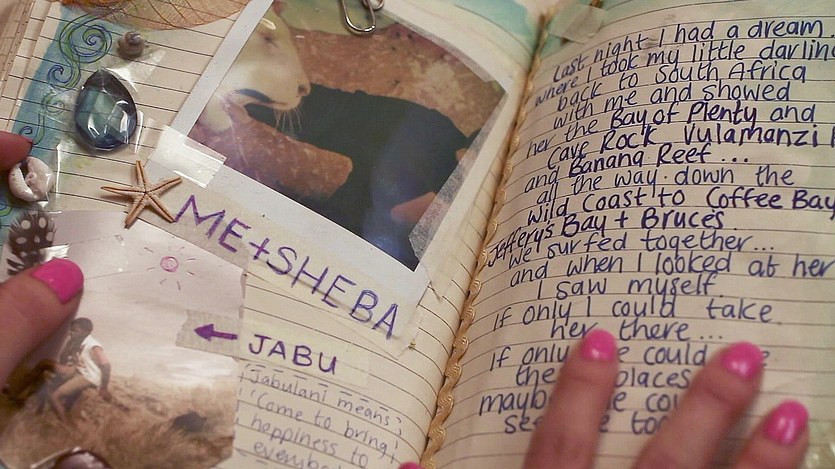 ME+SHEBA
JABU
Jabulani means;
'Come to bring
happiness to
Last night I had a dream.
where I took my little darlin
back to South Africa
with me and showed
her the Bay of Plenty and
Cave Rock Vulamanzi
and Banana Reef...
all the way down the
Wild Coast to Coffee Bay
Jefferys Bay + Bruces.
We surfed together...
and when I looked at her
I saw myself.
If only I could take
her there...
If only could
the places